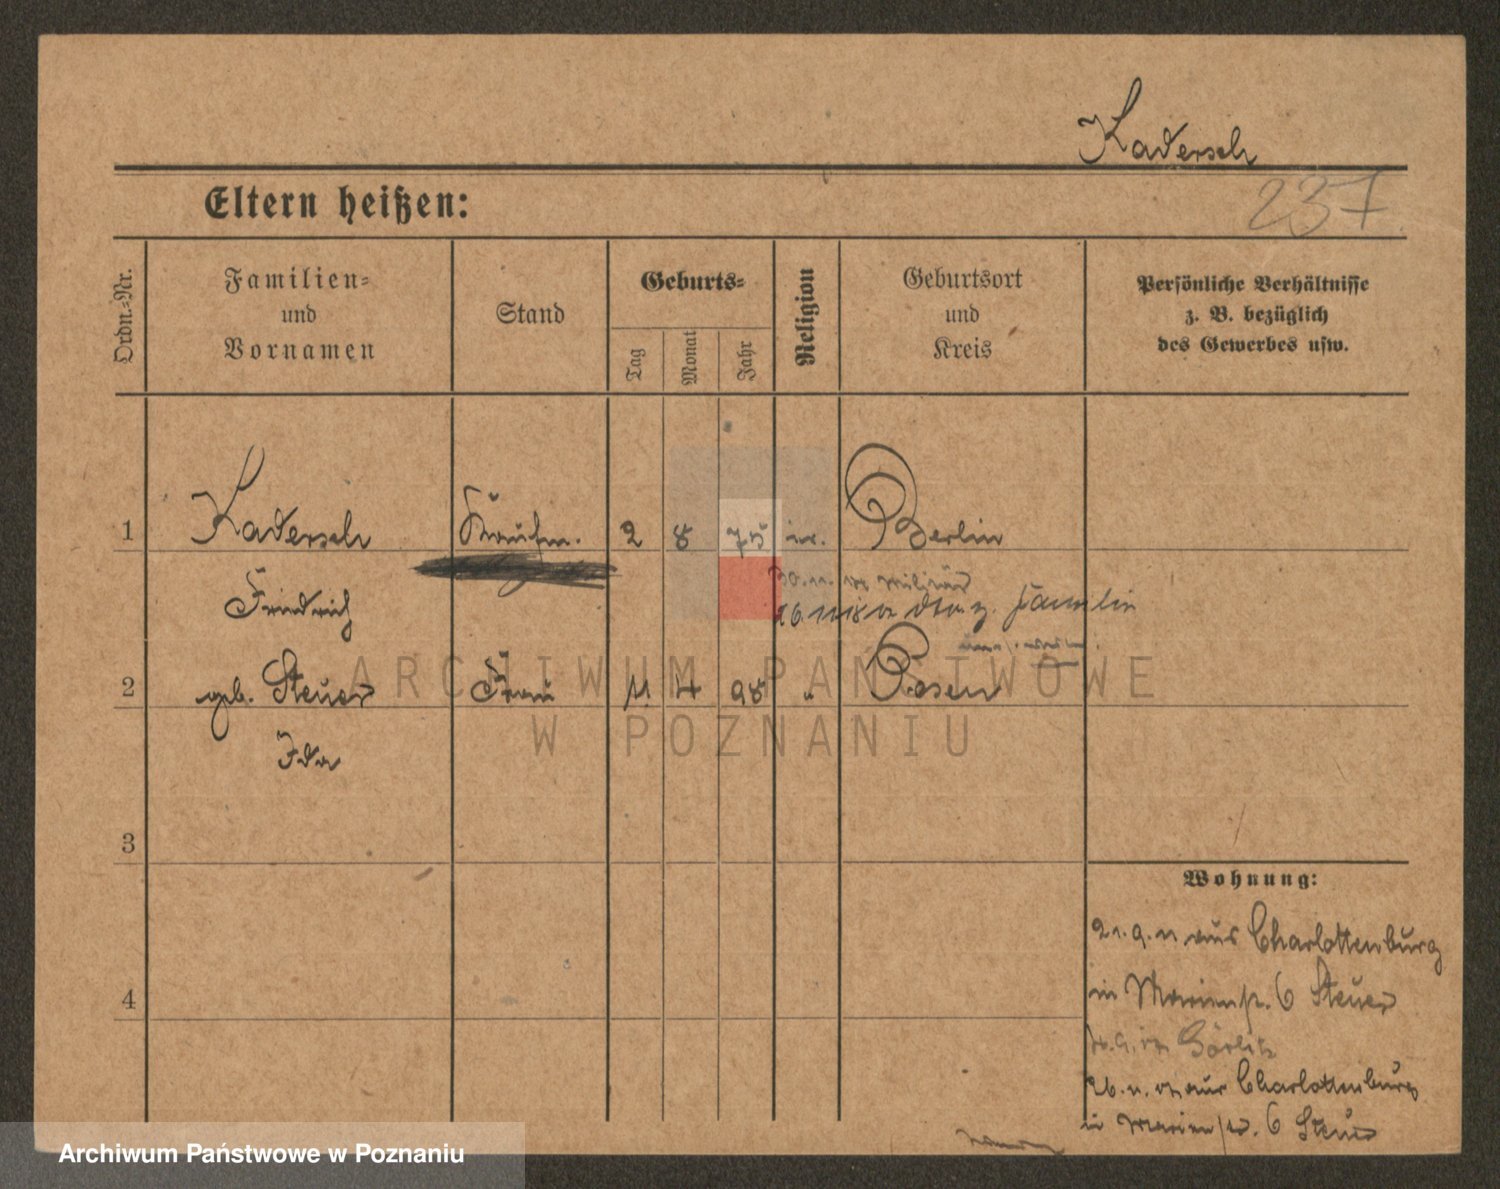 Kadersch
237
Eltern heißen:
Ordn.-Nr.
Familien-
und
Vornamen
Stand
Geburts-
Tag
Monat
Jahr
Religion
Geburtsort
und
Kreis
Persönliche Verhältnisse
z. B. bezüglich
des Gewerbes usw.
1 Kadersch Kaufm. 2 8 75 Berlin
Friedrich
2 geb. Steuer Frau 11 4 98 " Posen
Ida
3
4
Wohnung:
aus Charlottenburg
in 6 Steuer
Görlitz
aus Charlottenburg
in 6 Steuer
ARCHIWUM PAŃSTWOWE
W POZNANIU
Archiwum Państwowe w Poznaniu